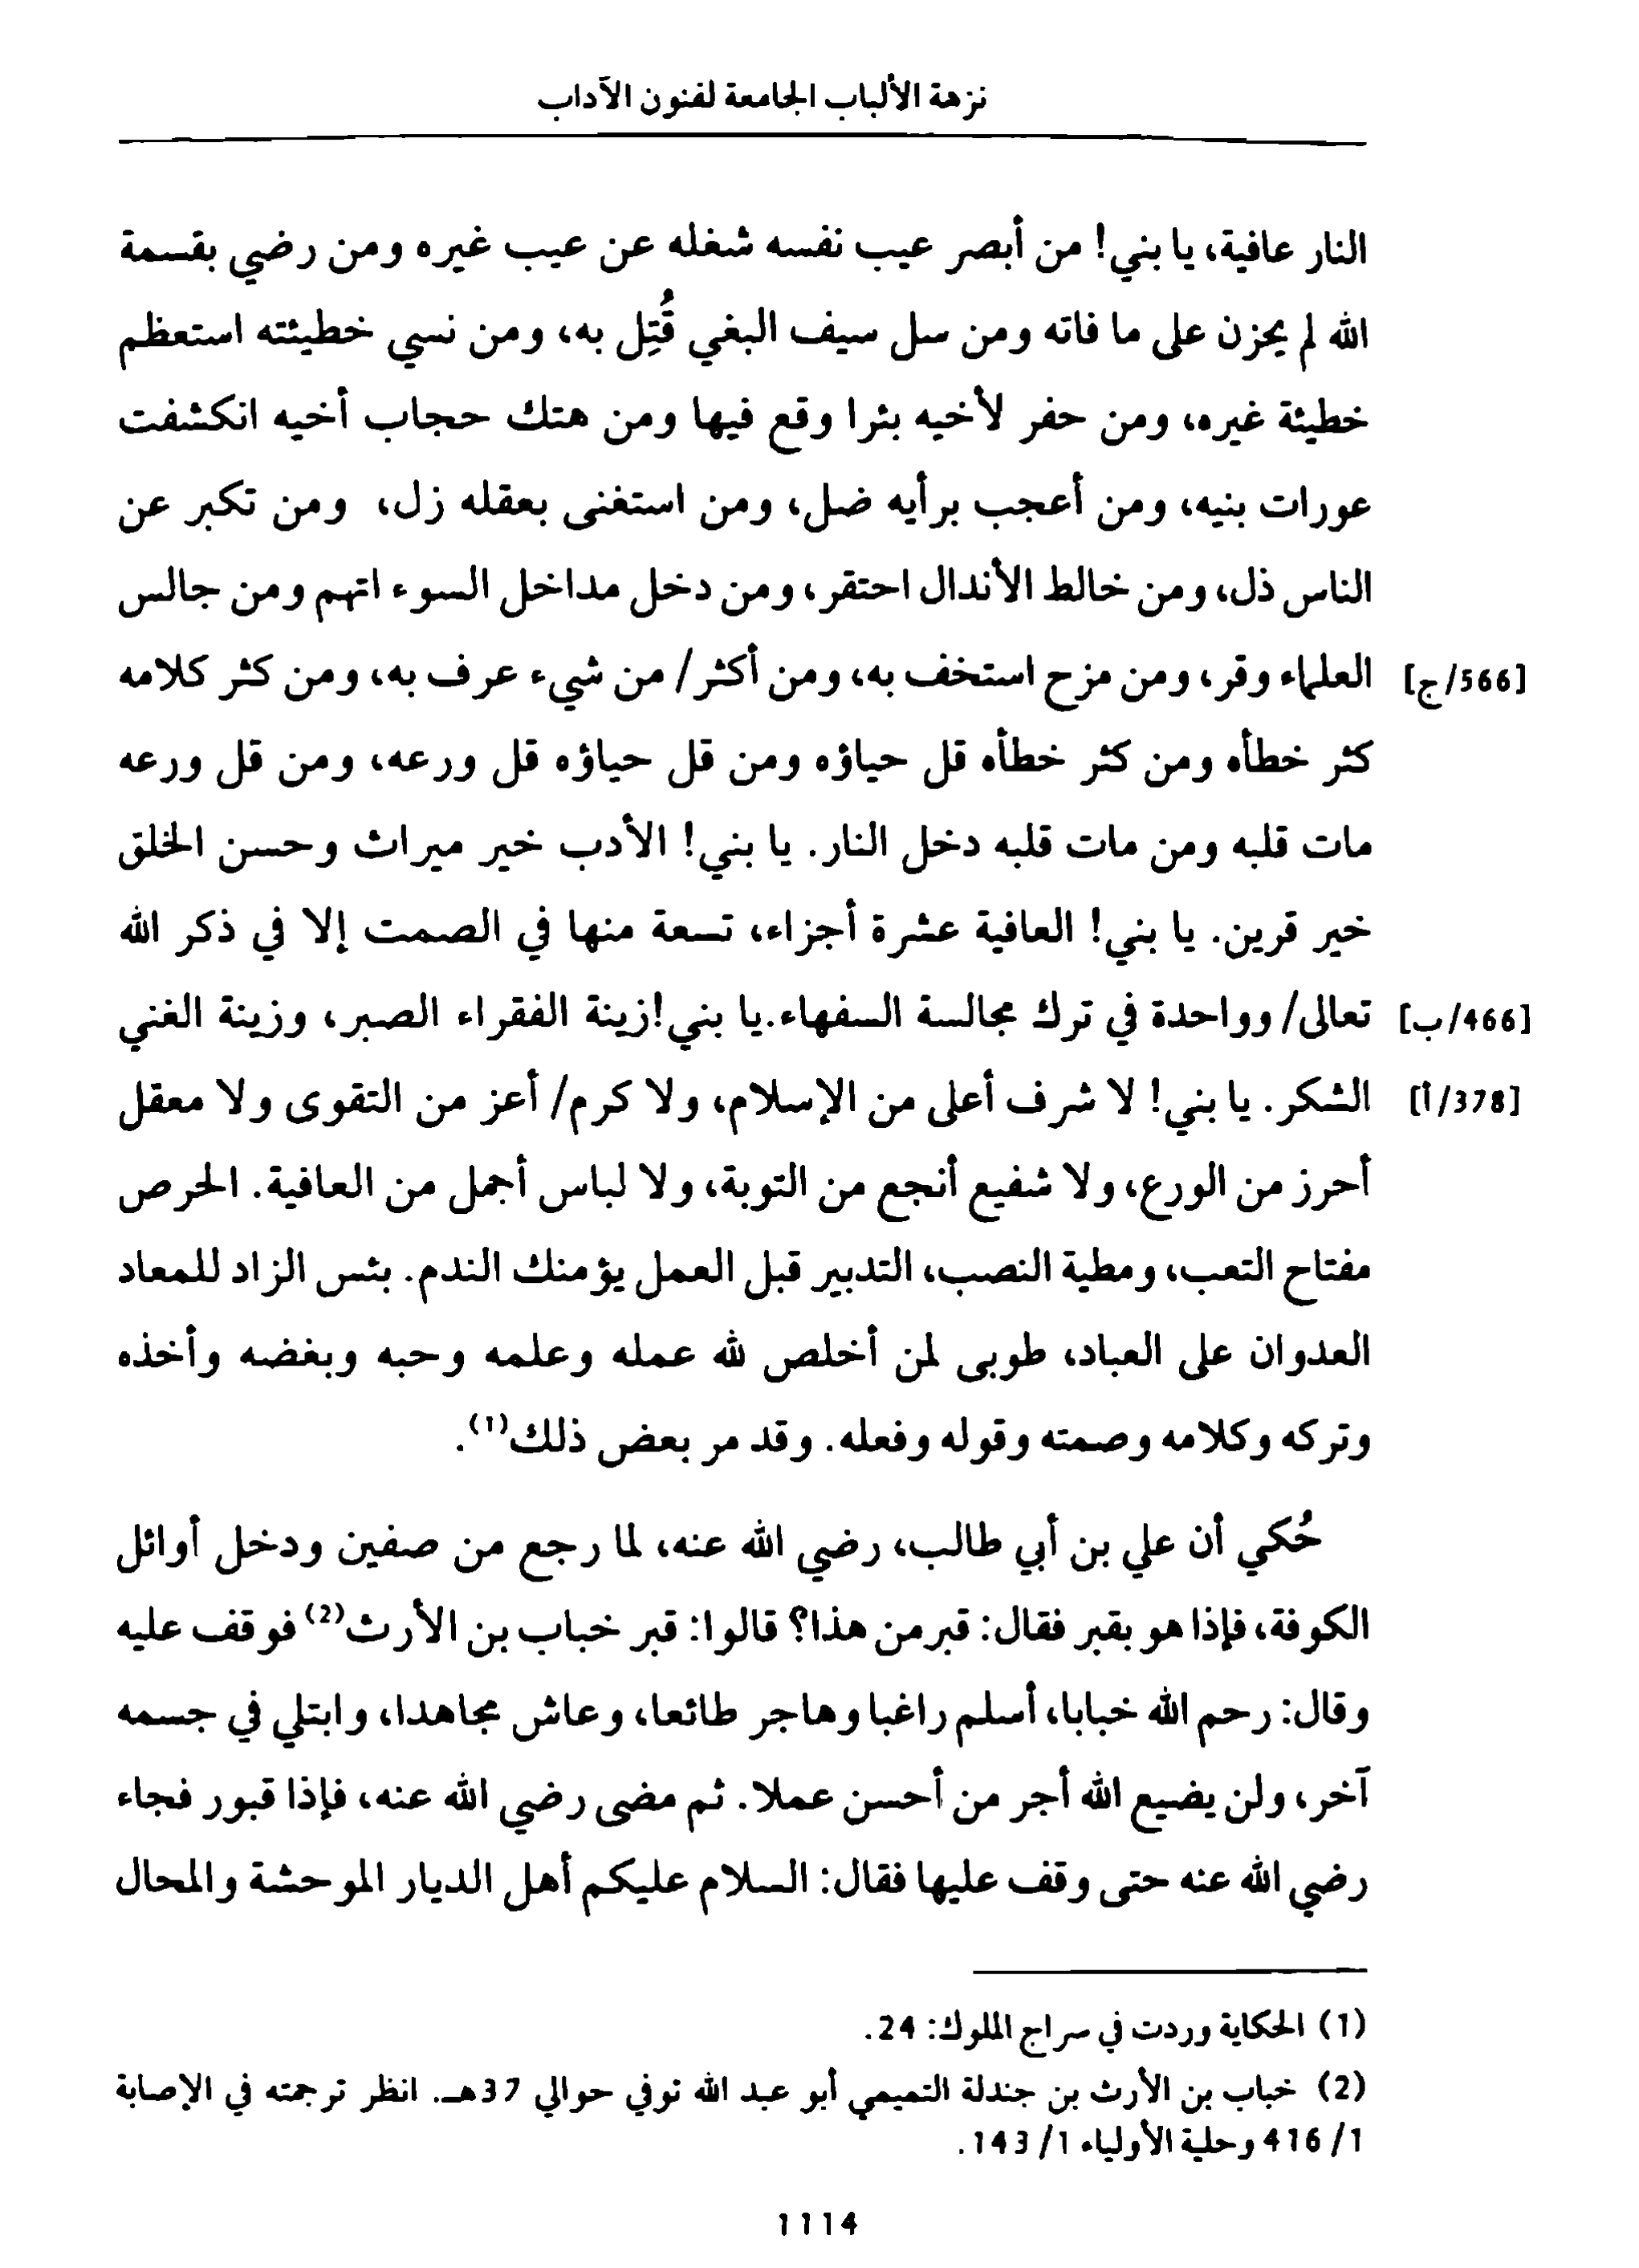 نزهة الألباب الجامعة لفنون الآداب
النار عافية، يا بني! من أبصر عيب نفسه شغله عن عيب غيره ومن رضي بقسمة
الله لم يحزن على ما فاته ومن سل سيف البغي قُتِل به، ومن نسي خطيئته استعظم
خطيئة غيره، ومن حفر لأخيه بئرا وقع فيها ومن هتك حجاب أخيه انكشفت
عورات بنيه، ومن أعجب برأيه ضل، ومن استغنى بعقله زل، ومن تكبر عن
الناس ذل، ومن خالط الأنذال احتقر، ومن دخل مداخل السوء اتهم ومن جالس
[566/ج] العلماء وقر، ومن مزح استخف به، ومن أكثر/ من شيء عرف به، ومن كثر كلامه
كثر خطأه ومن كثر خطأه قل حياؤه ومن قل حياؤه قل ورعه، ومن قل ورعه
مات قلبه ومن مات قلبه دخل النار. يا بني! الأدب خير ميراث وحسن الخلق
خير قرين. يا بني! العافية عشرة أجزاء، تسعة منها في الصمت إلا في ذكر الله
[466/ب] تعالى/ وواحدة في ترك مجالسة السفهاء.يا بني!زينة الفقراء الصبر، وزينة الغني
[378/أ] الشكر. يا بني! لا شرف أعلى من الإسلام، ولا كرم/ أعز من التقوى ولا معقل
أحرز من الورع، ولا شفيع أنجع من التوبة، ولا لباس أجمل من العافية. الحرص
مفتاح التعب، ومطية النصب، التدبير قبل العمل يؤمنك الندم. بئس الزاد للمعاد
العدوان على العباد، طوبى لمن أخلص لله عمله وعلمه وحبه وبغضه وأخذه
وتركه وكلامه وصمته وقوله وفعله. وقد مر بعض ذلك(1).
حُكي أن علي بن أبي طالب، رضي الله عنه، لما رجع من صفين ودخل أوائل
الكوفة، فإذا هو بقبر فقال: قبر من هذا؟ قالوا: قبر خباب بن الأرث(2) فوقف عليه
وقال: رحم الله خبابا، أسلم راغبا وهاجر طائعا، وعاش مجاهدا، وابتلي في جسمه
آخر، ولن يضيع الله أجر من أحسن عملا. ثم مضى رضي الله عنه، فإذا قبور فجاء
رضي الله عنه حتى وقف عليها فقال: السلام عليكم أهل الديار الموحشة والمحال
(1) الحكاية وردت في سراج الملوك: 24.
(2) خباب بن الأرث بن جندلة التميمي أبو عبد الله توفي حوالي 37هـ. انظر ترجمته في الإصابة
1/ 416 وحلية الأولياء 1/ 143.
1114